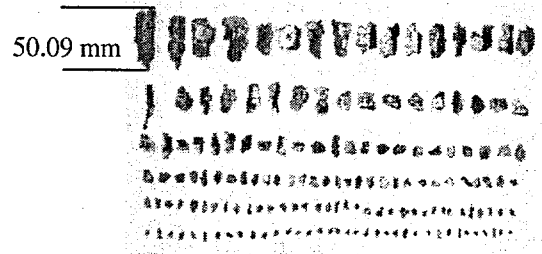 50.09 mm